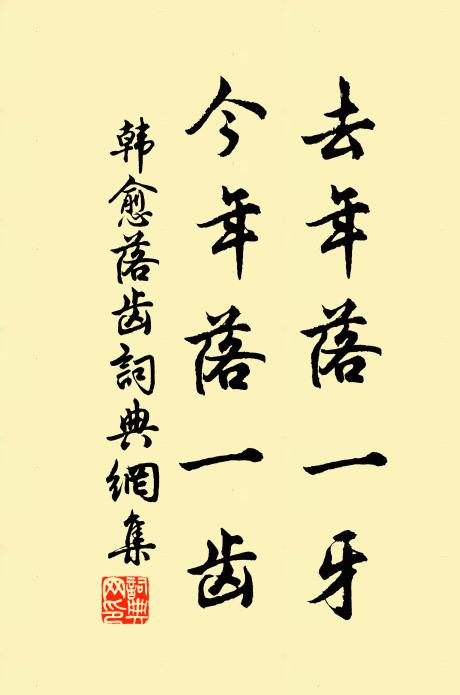 去年落一牙
今年落一齿
韩愈落齿詞典網集
詞典网印